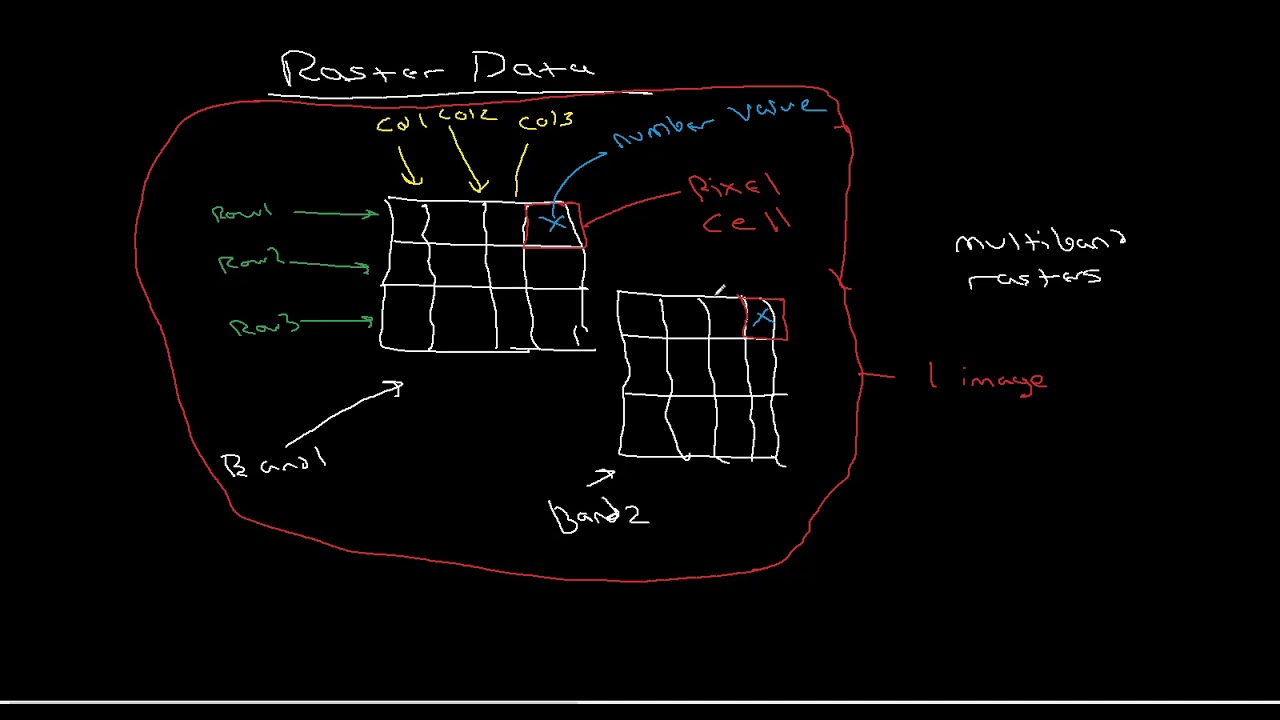 Raster Data
Col1 Col2 Col3
number value
Pixel
cell
Row1
Row2
Row3
multiband
rasters
1 image
Band1
Band2
X
X